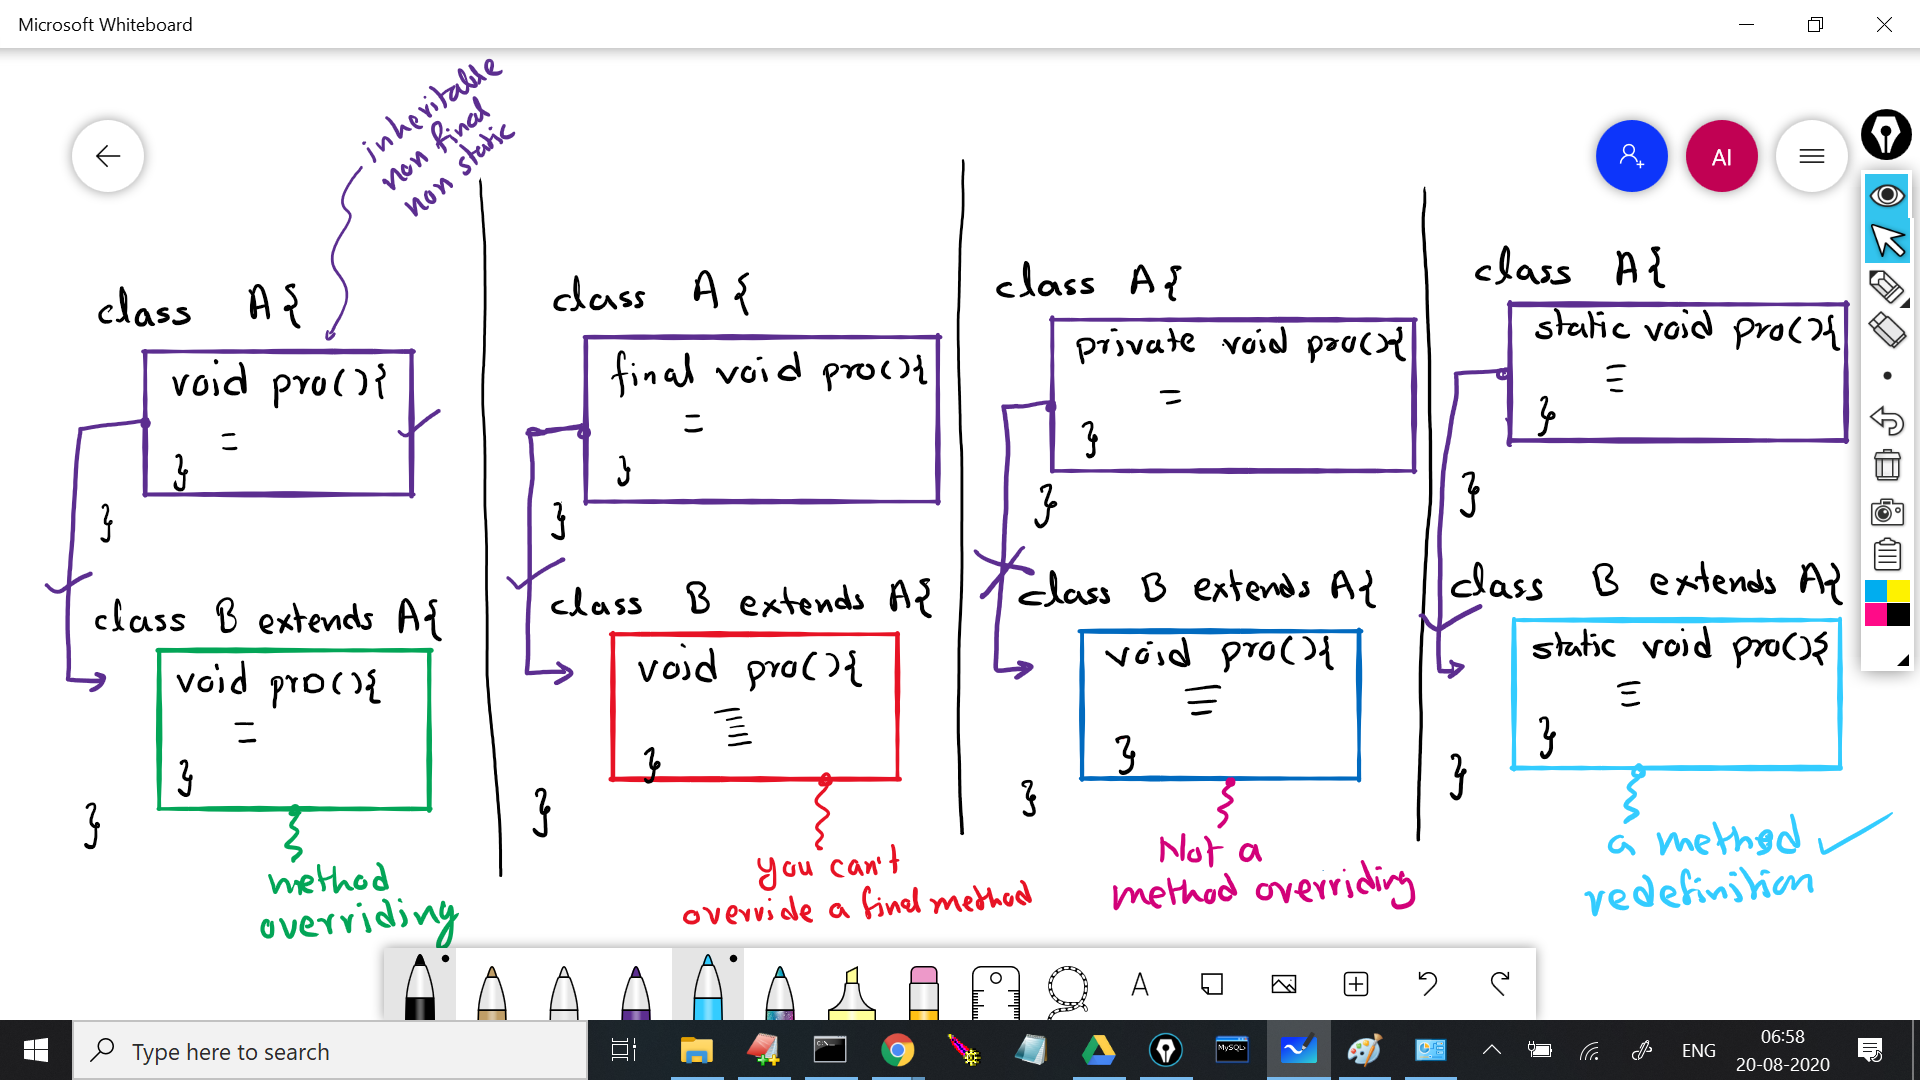 Microsoft Whiteboard
inheritable
non final
non static
AI
class A{
void pro(){
=
}
}
class B extends A{
void pro(){
=
}
}
method
overriding
class A{
final void pro(){
=
}
}
class B extends A{
void pro(){
}
}
you can't
override a final method
class A{
private void pro(){
=
}
}
class B extends A{
void pro(){
≡
}
}
Not a
method overriding
class A{
static void pro(){
≡
}
}
class B extends A{
static void pro(){
≡
}
}
a method
redefinition
A
Type here to search
C:\_
MySQL
ENG
06:58
20-08-2020